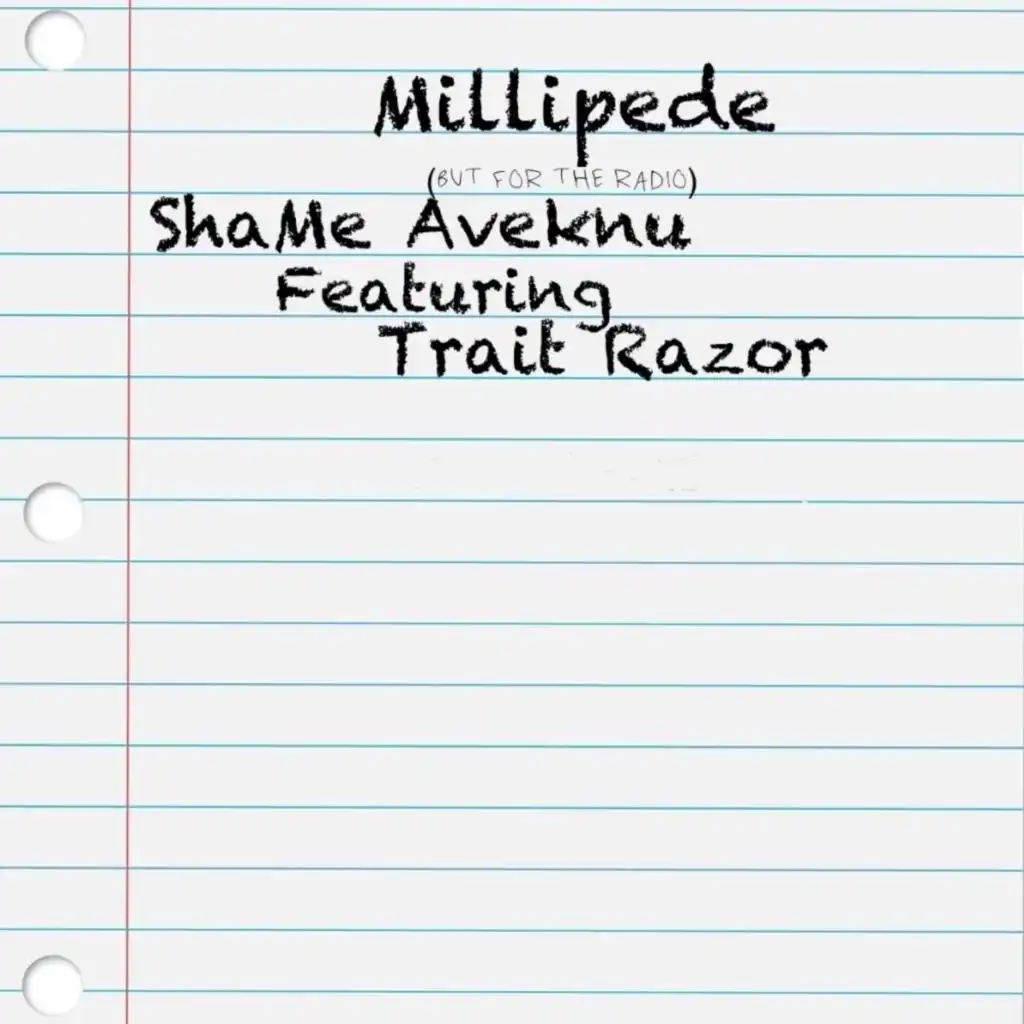 Millipede
(BUT FOR THE RADIO)
ShaMe Aveknu
Featuring
Trait Razor